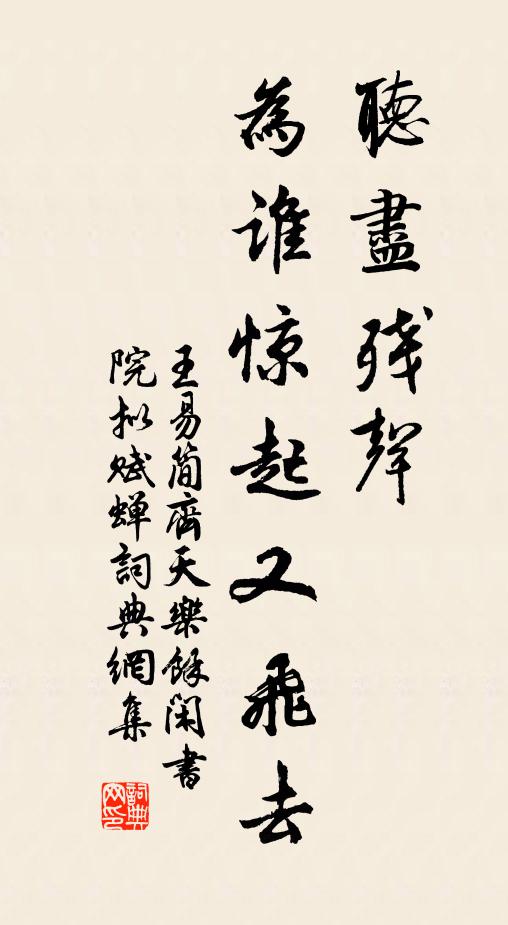 聽盡殘聲
為誰惊起又飛去
王易简齊天樂餘閑書
院拟赋蝉詞典網集
詞典
网印